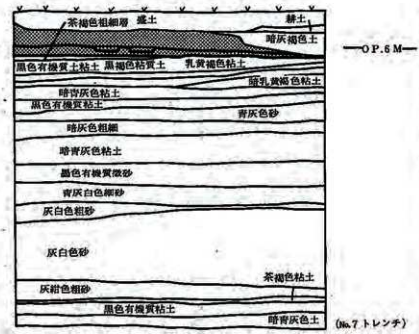 茶褐色粗細層 盛土 耕土
暗灰褐色土
OP.5M
黒色有機質土粘土 黒褐色粘質土 乳黄褐色粘土
暗乳黄褐色粘土
暗青灰色粘土
黒色有機質粘土
青灰色砂
暗灰色粗細
暗青灰色粘土
黒色有機質微砂
青灰白色細砂
灰白色粗砂
灰白色砂
茶褐色粘土
灰紺色粗砂
黒色有機質粘土
暗青灰色土
(No.7 トレンチ)